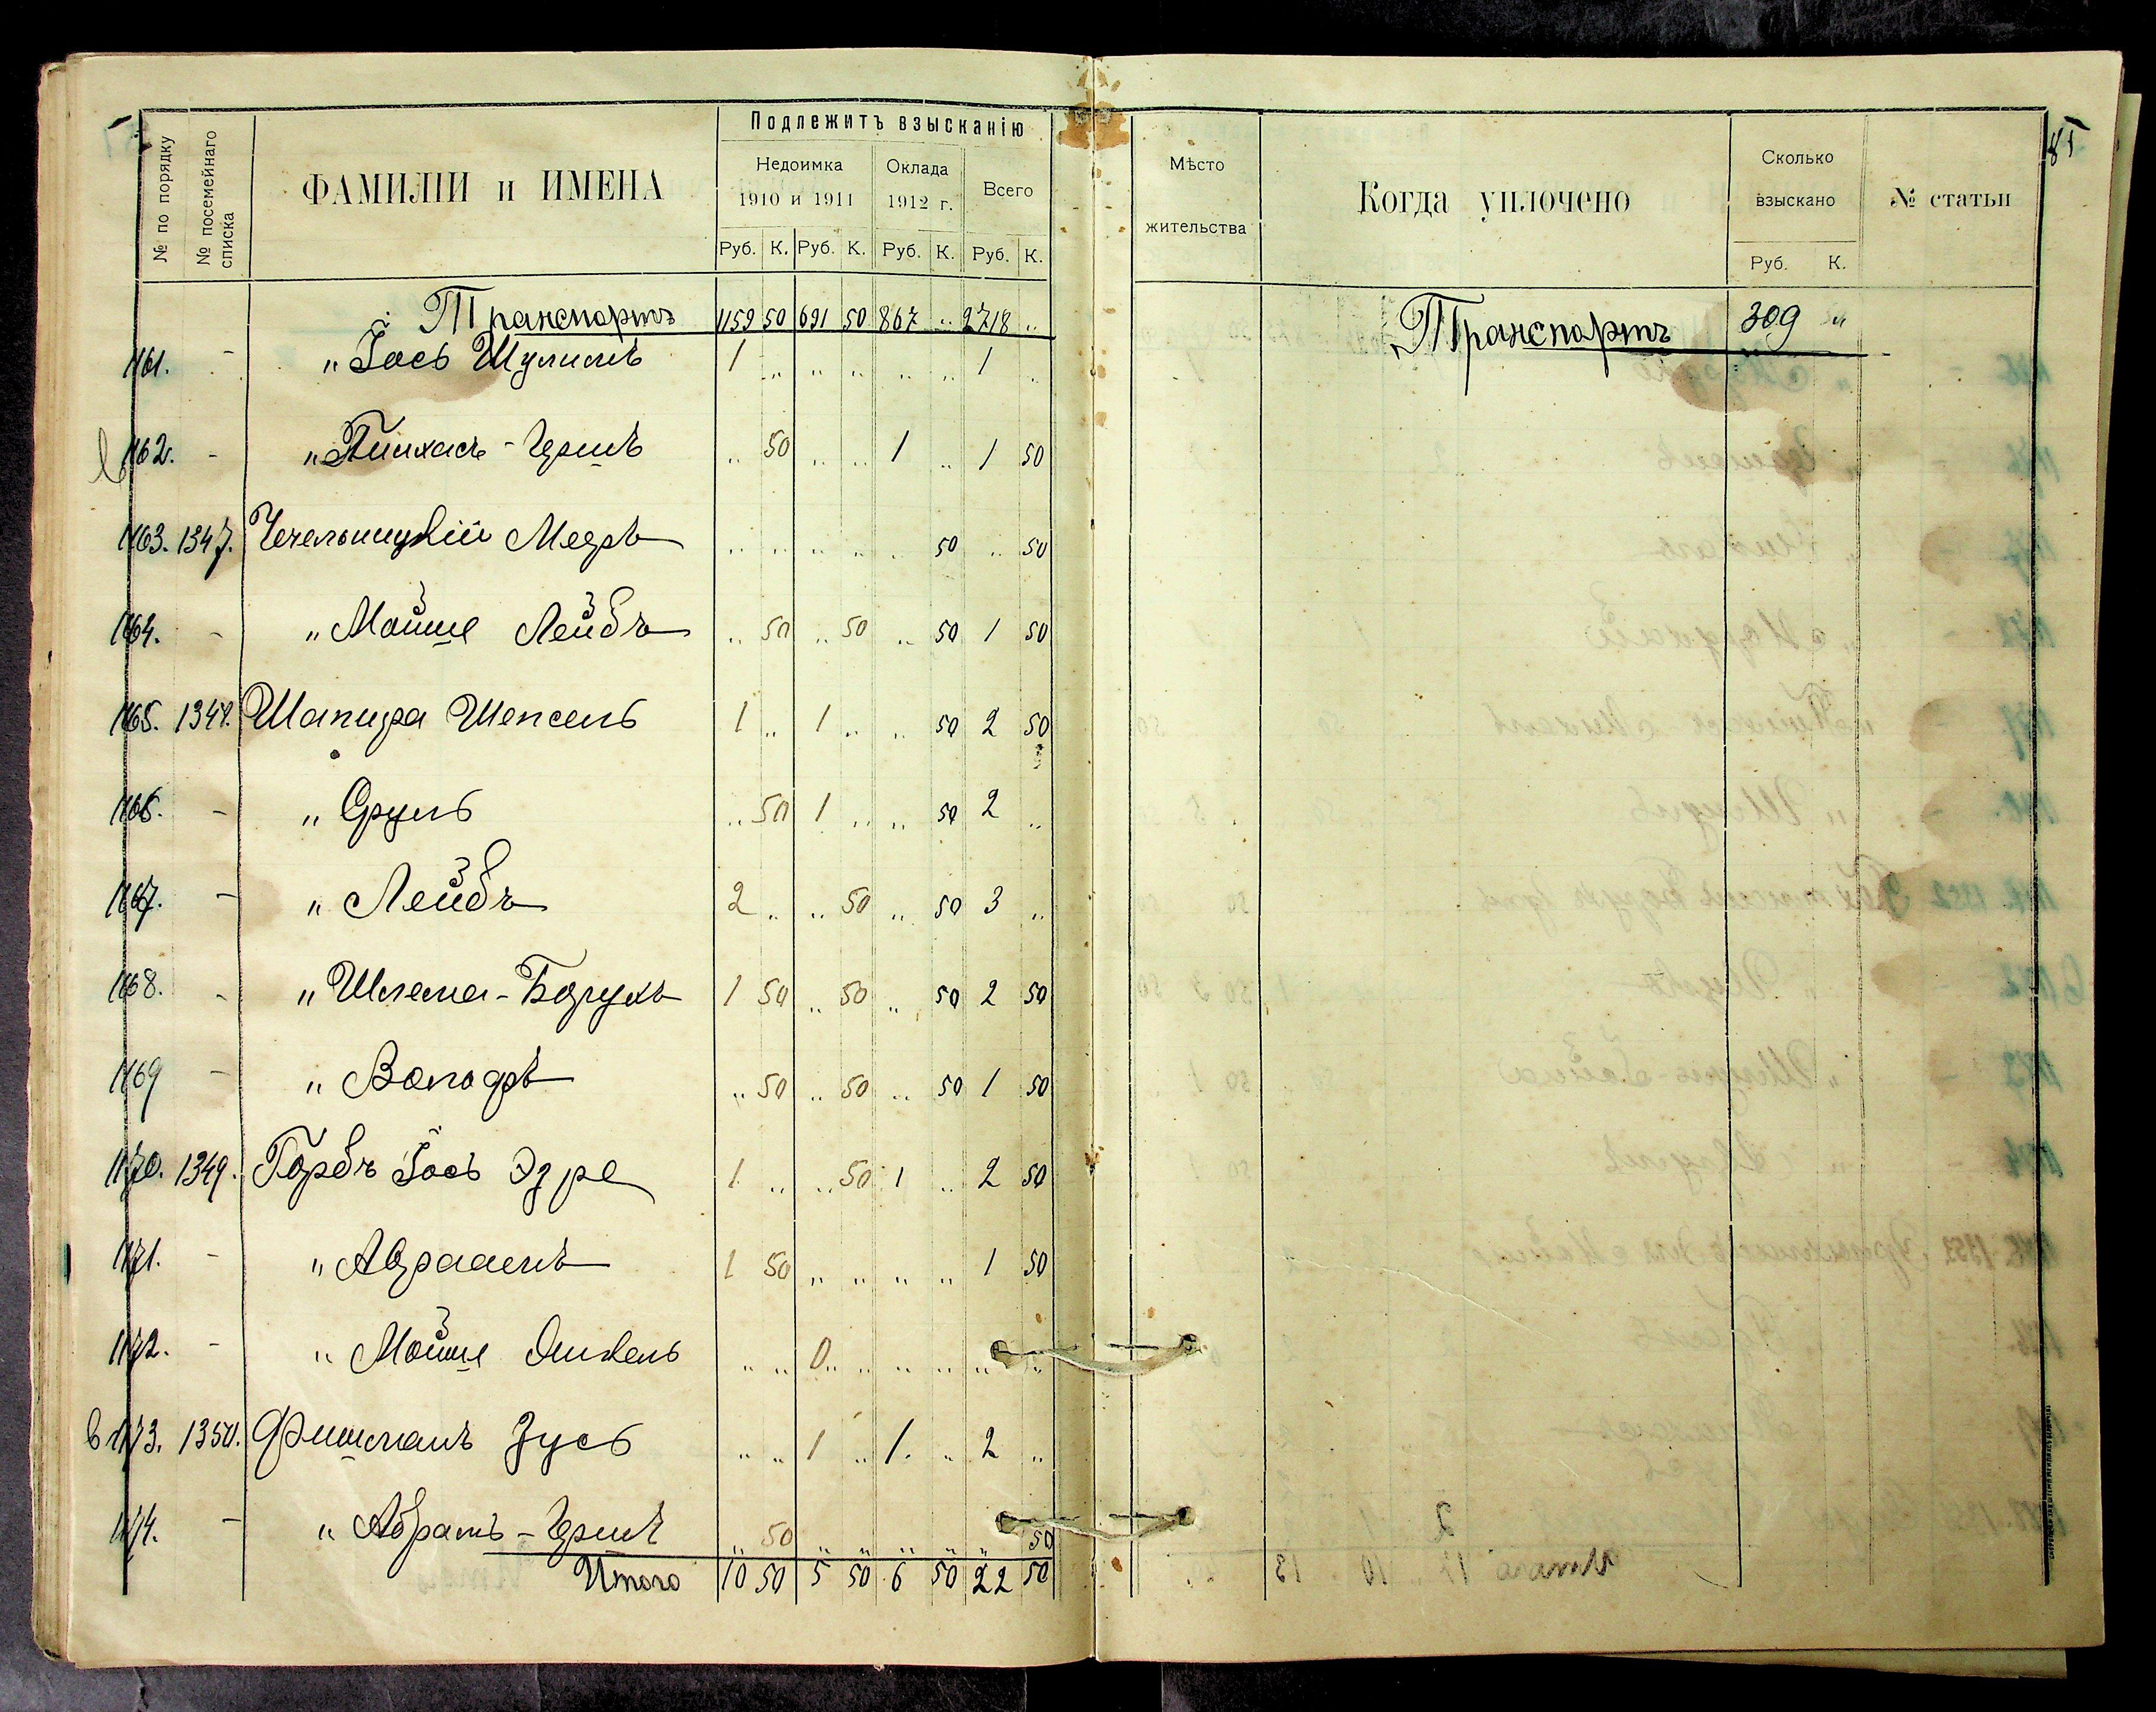 № по порядку
№ посемейнаго списка
ФАМИЛІИ и ИМЕНА
Подлежитъ взысканію
Недоимка 1910 и 1911
Оклада 1912 г.
Всего
Руб. К. Руб. К. Руб. К. Руб. К.
Транспортъ 1159 50 691 50 867 „ 2718 „
1161. - „ Іось Шулимъ 1 „ „ „ „ „ 1 „
1162. - „ Пинхасъ-Гершъ „ 50 „ „ 1 „ 1 50
1163. 1347. Чечельницкій Мееръ „ „ „ „ „ 50 „ 50
1164. - „ Мойше Лейбъ „ 50 „ 50 „ 50 1 50
1165. 1348. Шапира Шепсель 1 „ 1 „ „ 50 2 50
1166. - „ Сруль „ 50 1 „ „ 50 2 „
1167. - „ Лейбъ 2 „ „ 50 „ 50 3 „
1168. - „ Шлема-Борухъ 1 50 „ 50 „ 50 2 50
1169 - „ Володъ „ 50 „ 50 „ 50 1 50
1170. 1349. Горбъ Іось 1 „ „ 50 1 „ 2 50
1171. - „ Авраамъ 1 50 „ „ „ „ 1 50
1172. - „ Мойше „ „ 0 „ „ „ „ „
1173. 1350. Фишманъ Зусь „ „ 1 „ 1. „ 2 „
1174. - „ Абрамъ-Гершъ „ 50 „ „ „ „ „ 50
Итого 10 50 5 50 6 50 22 50
85
Мѣсто жительства
Когда уплочено
Сколько взыскано
Руб. К.
№ статьи
Транспортъ 309 „